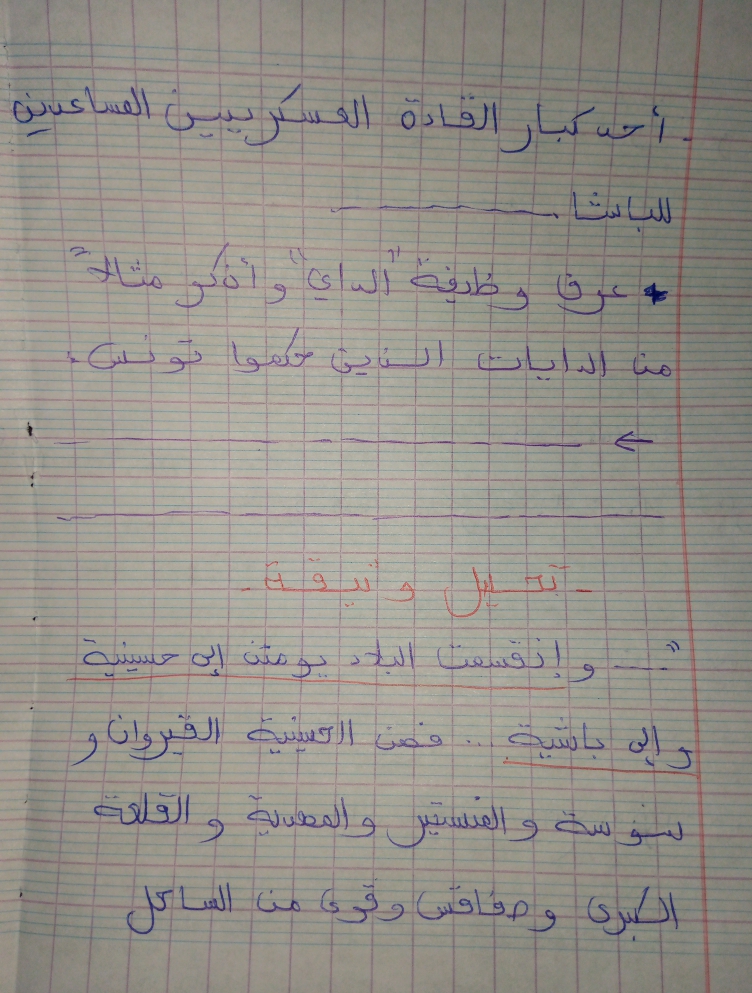 - أحد كبار القادة العسكريين المساعدين
للباشا.
• عرف وظيفة "الداي" وأذكر مثالا
من الدايات الذين حكموا تونس.
←
- تحليل وثيقة -
"— وإنقسمت البلاد يومئذ إلى حسينية
وإلى باشية... فمن الحسينية القيروان و
سوسة والمنستير والمهدية والقلعة
الكبرى وصفاقس وقرى من الساحل